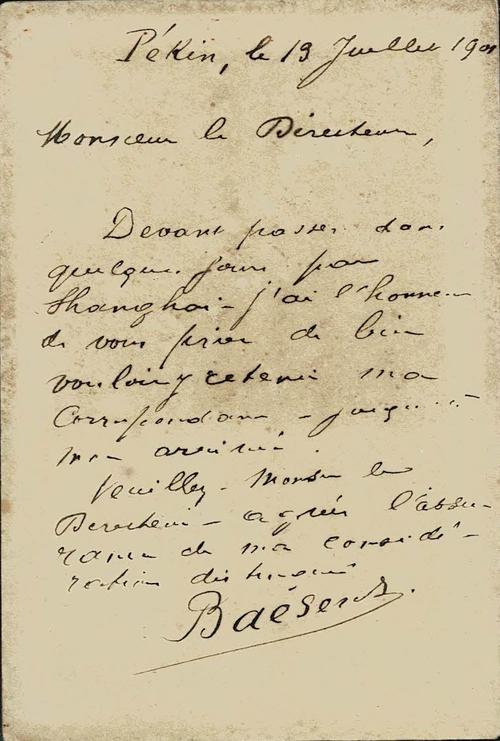 Pékin, le 13 Juillet 190
Monsieur le Directeur,
Devant passer dans
quelques jours par
Shanghai - j'ai l'honneur
de vous prier de bien
vouloir y retenir ma
Correspondance - jusqu'à
mon arrivée.
Veuillez - Monsieur le
Directeur - agréer l'assu-
rance de ma considé-
ration distinguée